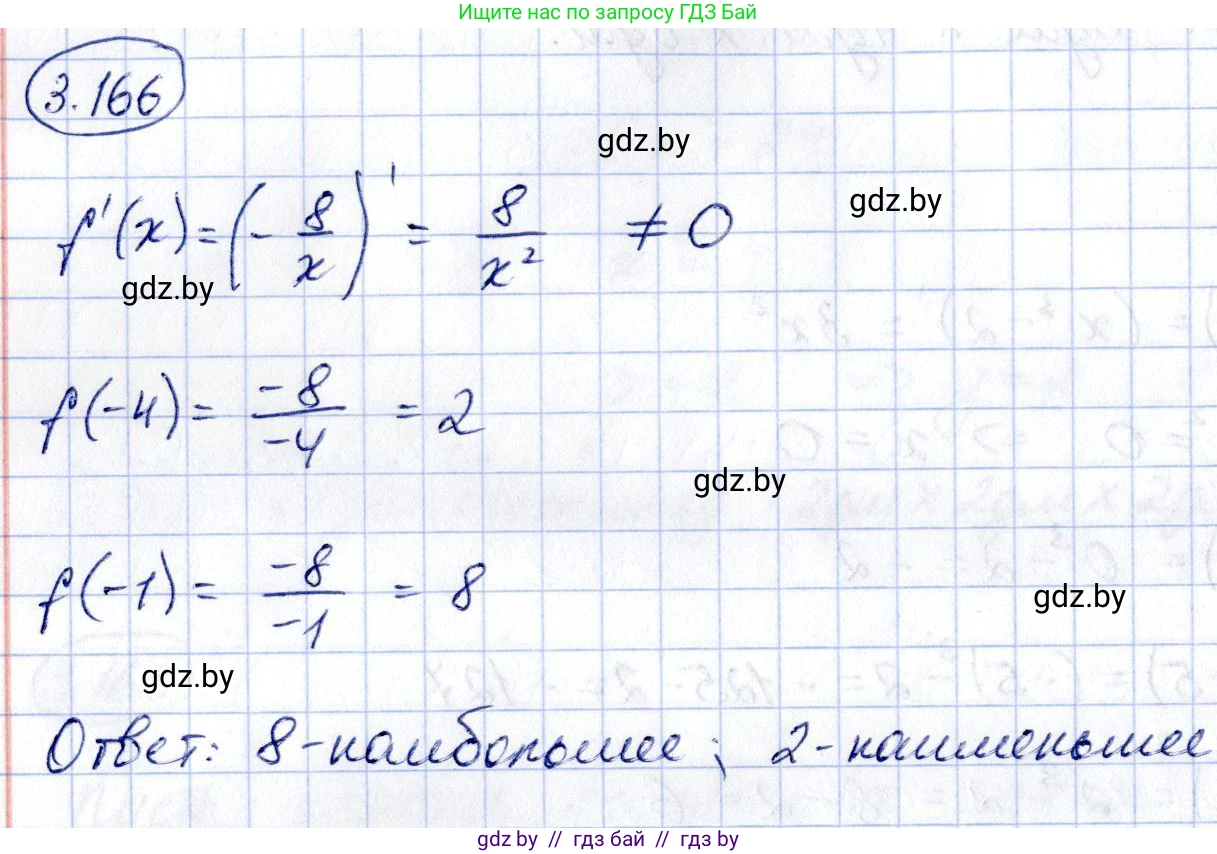 Ищите нас по запросу ГДЗ Бай
3.166
gdz.by
gdz.by
f'(x) = (- 8/x)' = 8/x² ≠ 0
gdz.by
f(-4) = -8/-4 = 2
gdz.by
f(-1) = -8/-1 = 8
gdz.by
gdz.by
Ответ: 8 - наибольшее ; 2 - наименьшее
gdz.by // гдз бай // gdz.by